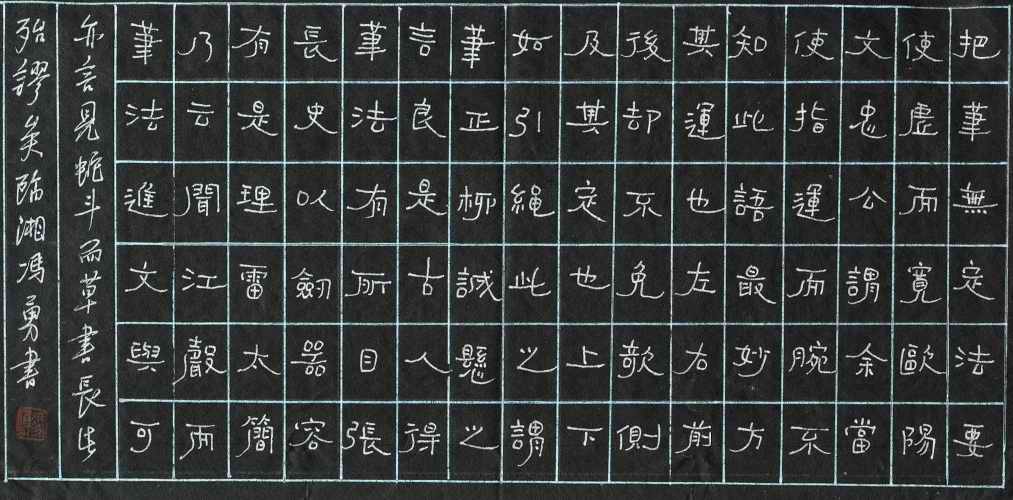 把筆無定法要
使虛而寬歐陽
文忠公謂余當
使指運而腕不
知此語最妙方
其運也左右前
後却不免欹側
及其定也上下
如引繩此之謂
筆正柳誠懸之
言良是古人得
筆法有所自張
長史以劔器容
有是理雷太簡
乃云聞江聲而
筆法進文與可
亦言見蛇斗而草書長此
殆謬矣臨湘馮勇書